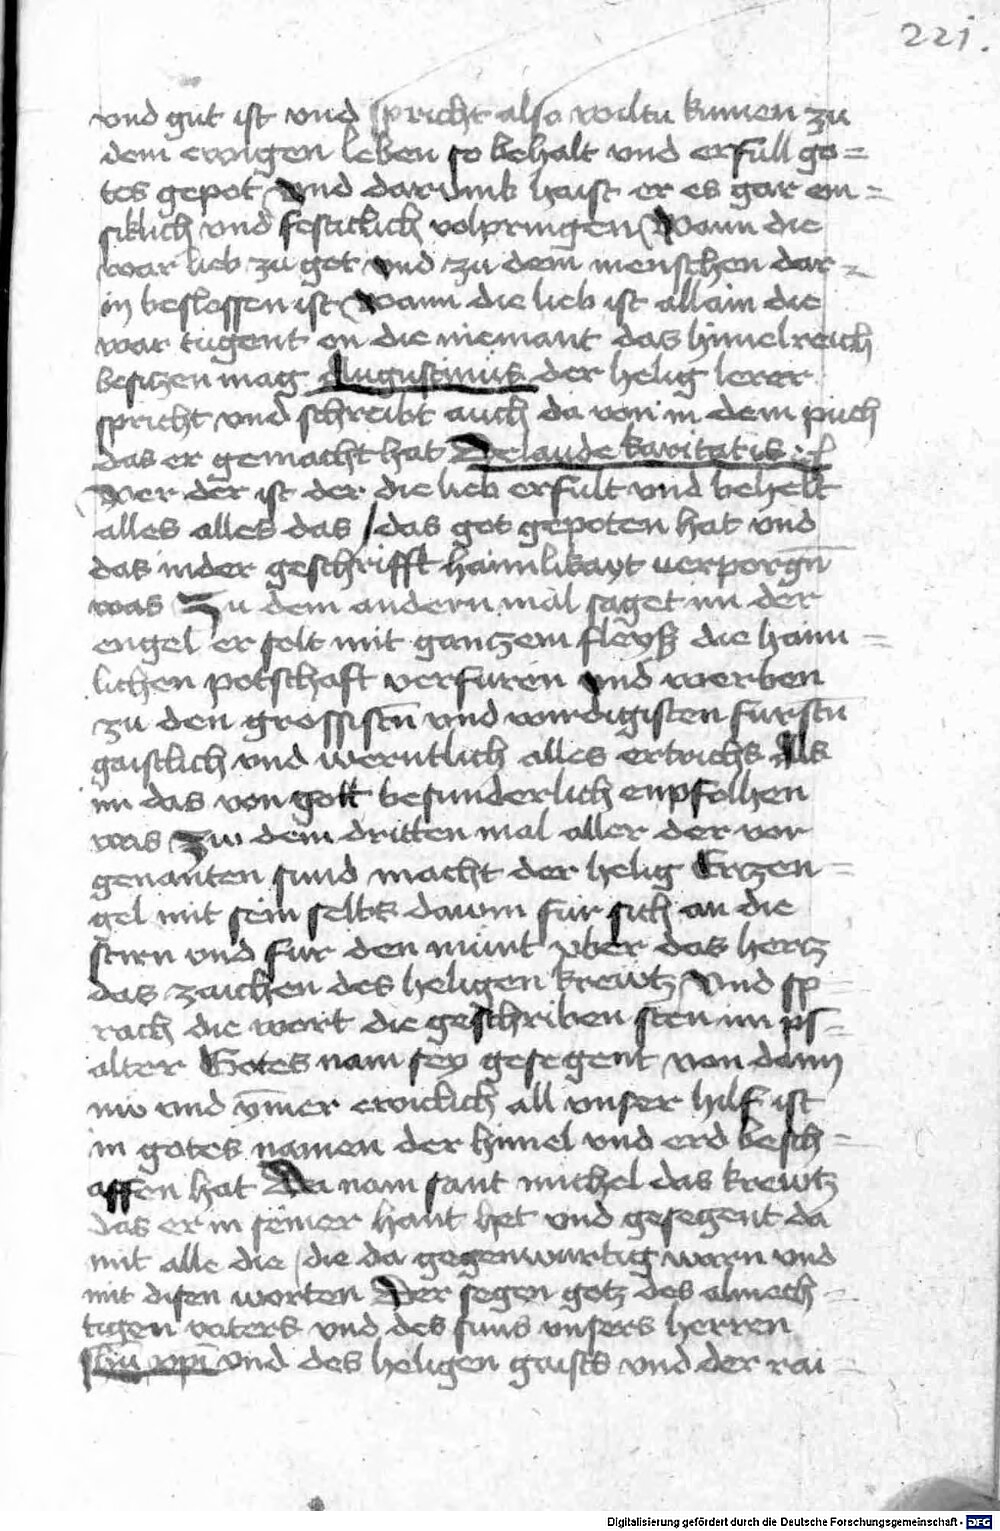 221.
vnd gut ist vnd spricht also wiltu kumen zu
dem ewigen leben so behalt vnd erfull go=
tes gepot Vnd darumb haist er es gar en=
siklich vnd festiklich volpringen Wann die
war lieb zu got vnd zu dem menschen dar=
in beslossen ist Wann die lieb ist allain die
war tugent on die niemant das himelreich
besiczen mag Augustinus der helig lerer
spricht vnd schreibt auch da von in dem puch
das er gemacht hat De laude karitatis
Wer der ist der die lieb erfult vnd behelt
alles alles das / das got gepoten hat vnd
das in der geschrifft haimlikayt verporgn̄
was Zu dem andern mal saget im der
engel er solt mit ganczem fleyß die haim=
lichen potschaft verfuren vnd werben
zu den grossistn̄ vnd wirdigisten furstn̄
gaistlich vnd werntlich alles ertrichs Als
im das von gott besunderlich enpfolhen
was Zw dem dritten mal aller der vor
genanten sund macht der helig Erczen=
gel mit sein selbs dawm für sich an die
stirn vnd für den munt vber das hertz
das zaichen des heligen krewtz Vnd sp=
rach die wort die geschriben sten im ps=
alter Gotes nam sey gesegent von dann
nw vnd ymer ewiclich all vnser hilf ist
in gotes namen der himel vnd erd besch=
affen hat Da nam sant michel das krewtz
das er in seiner hant het vnd gesegent da
mit alle die / die da gegenwurtig warn vnd
mit disen worten Der segen gotz des almech=
tigen vaters vnd des suns vnsers herren
ihū xpī vnd des heligen gaists vnd der rai=
Digitalisierung gefördert durch die Deutsche Forschungsgemeinschaft - DFG